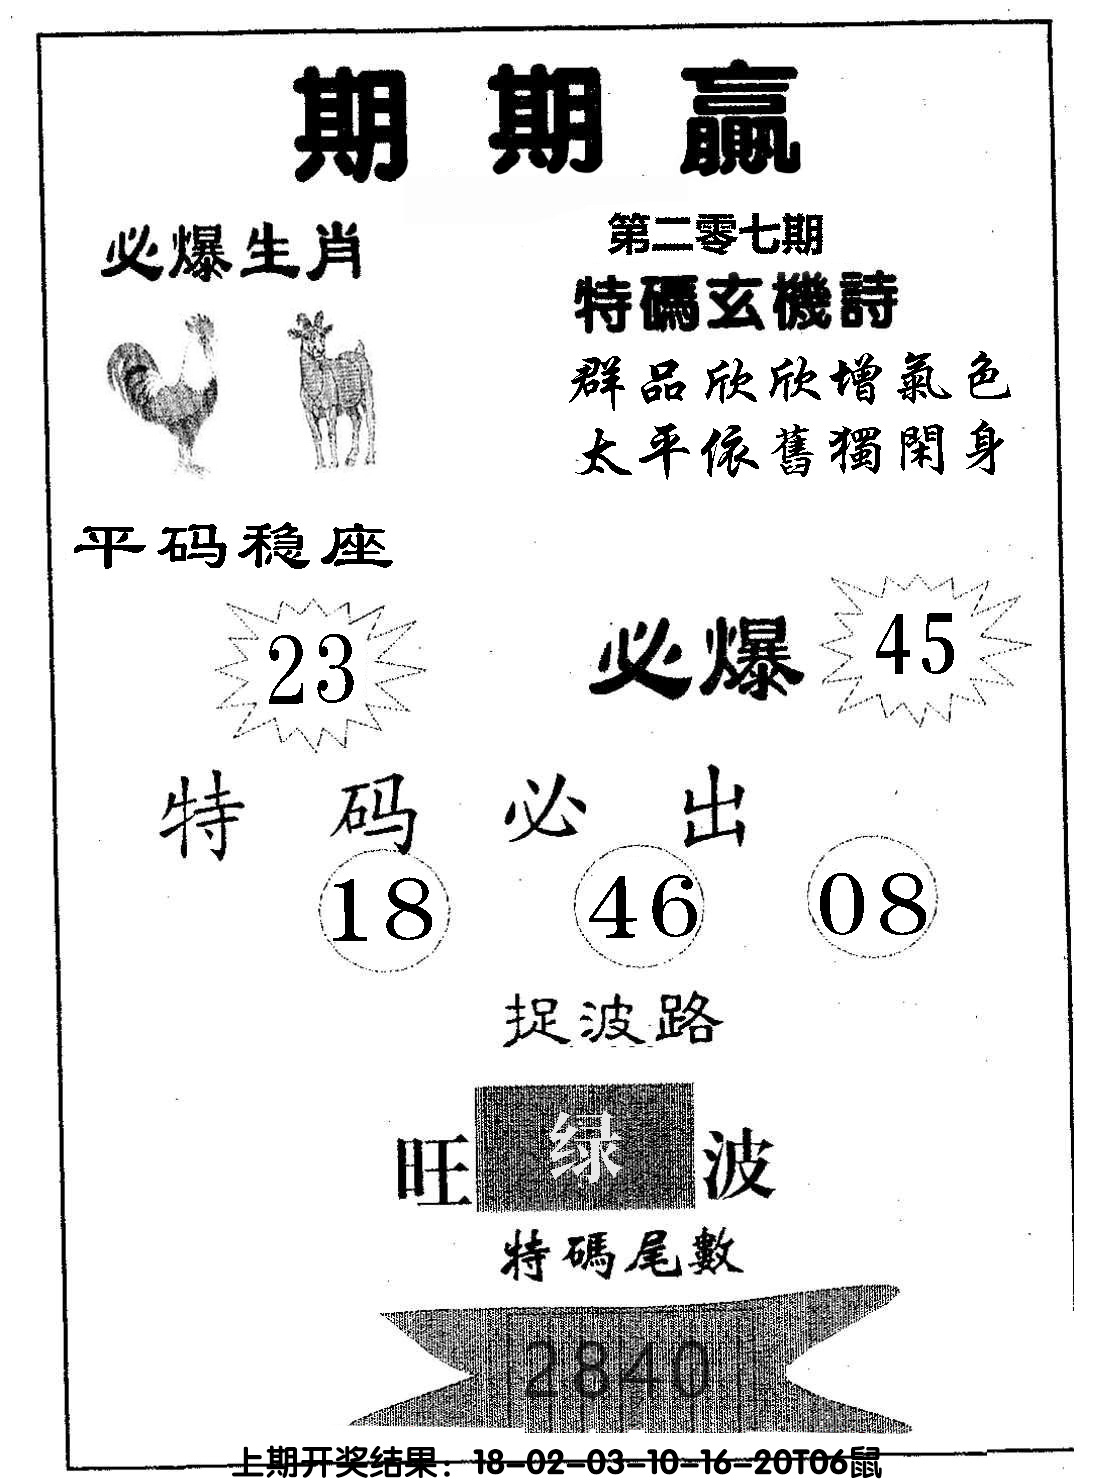 期期贏
必爆生肖
第二零七期
特碼玄機詩
群品欣欣增氣色
太平依舊獨閑身
平码稳座
23
必爆 45
特码必出
18 46 08
捉波路
旺 绿 波
特碼尾數
2840
上期开奖结果：18-02-03-10-16-20T06鼠